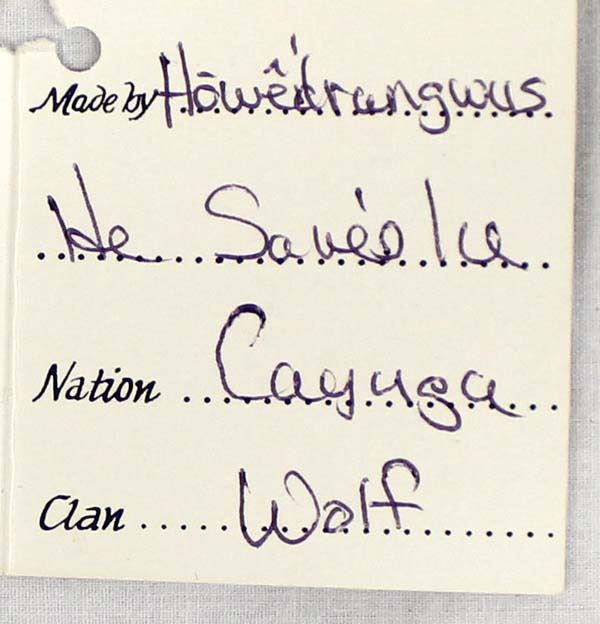 Made by Hōwê'drangwus
He Saves Ice
Nation Cayuga
Clan Wolf